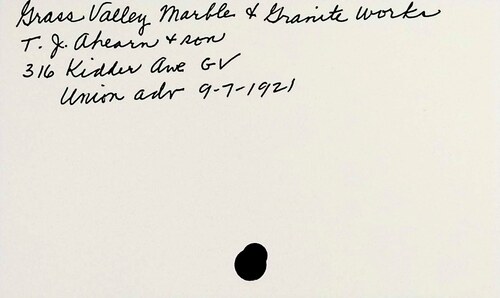 Grass Valley Marble & Granite Works
T. J. Ahearn & son
316 Kidder Ave GV
Union adv 9-7-1921